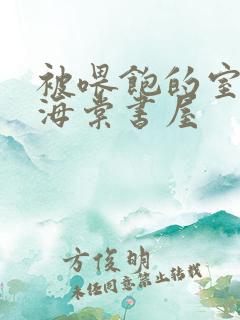 被喂饱的室
海棠书屋
方俊明
未经同意禁止转载